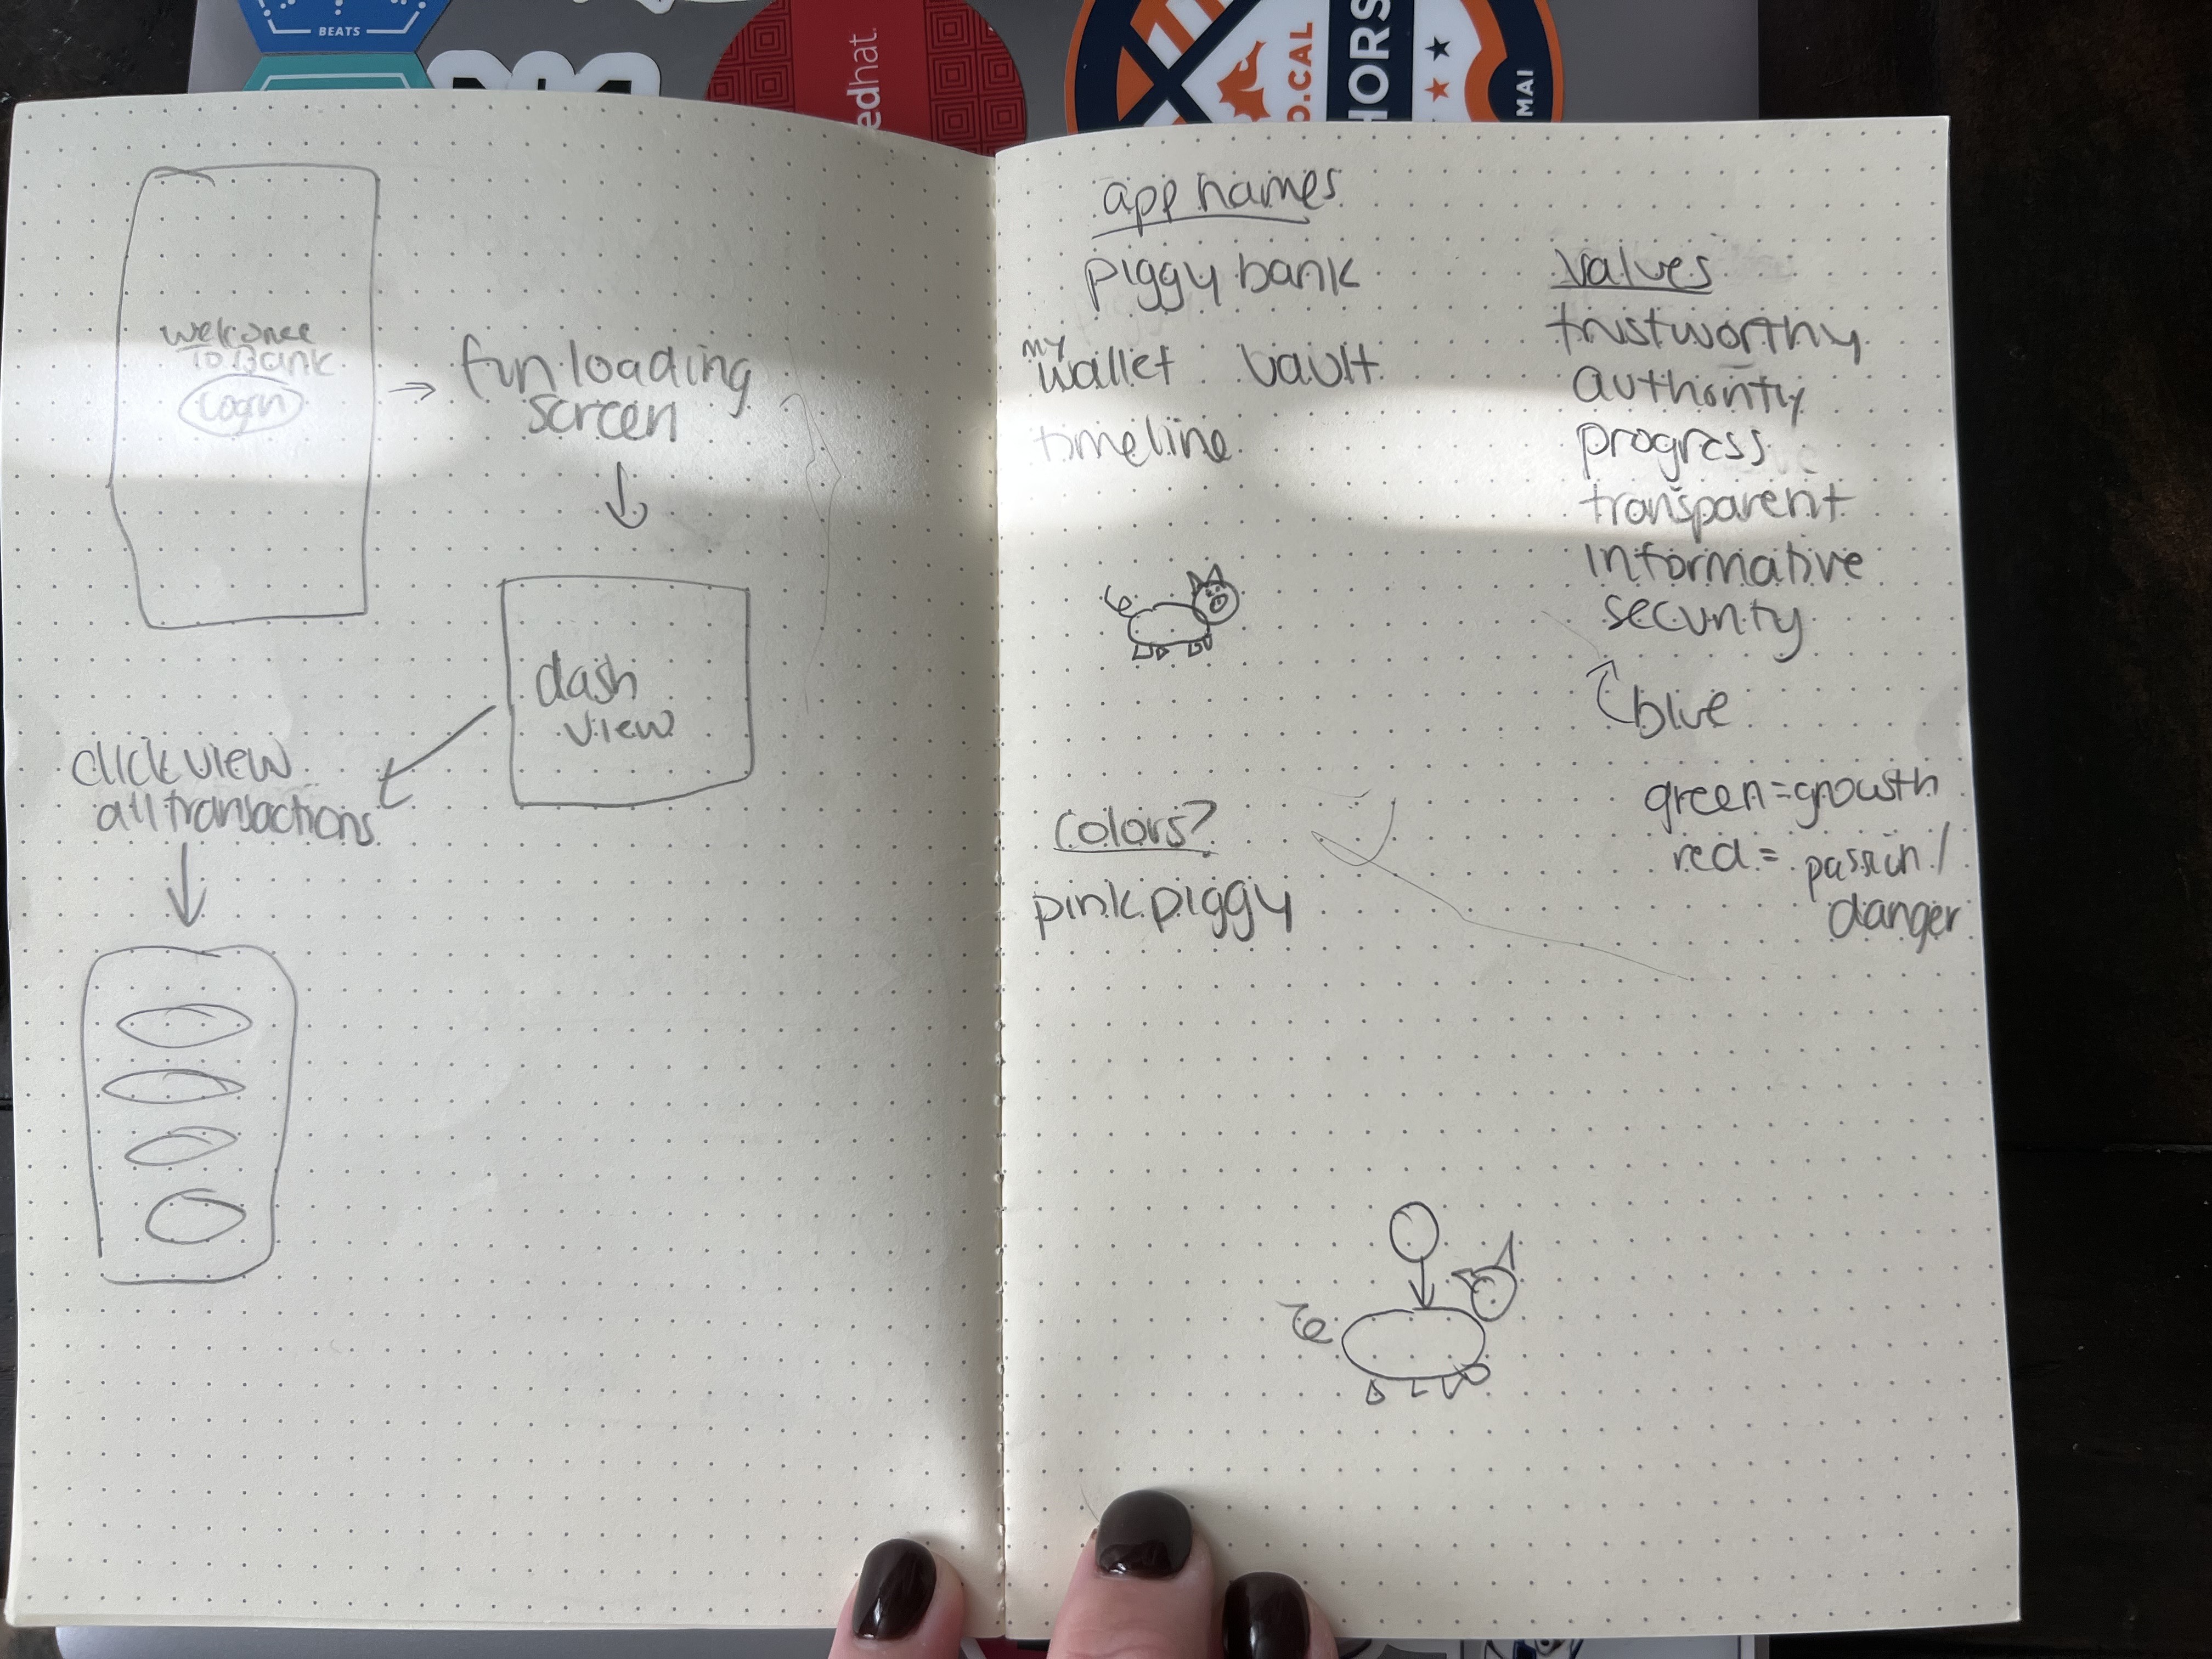 welcome
to Bank
Login
→ fun loading
screen
dash
view
click view
all transactions
app names
piggy bank
my wallet vault
timeline
Colors?
pink piggy
values
trustworthy
authority
progress
transparent
informative
security
blue
green = growth
red = passion /
danger
BEATS
edhat.
O.CAL
HORS
MAI